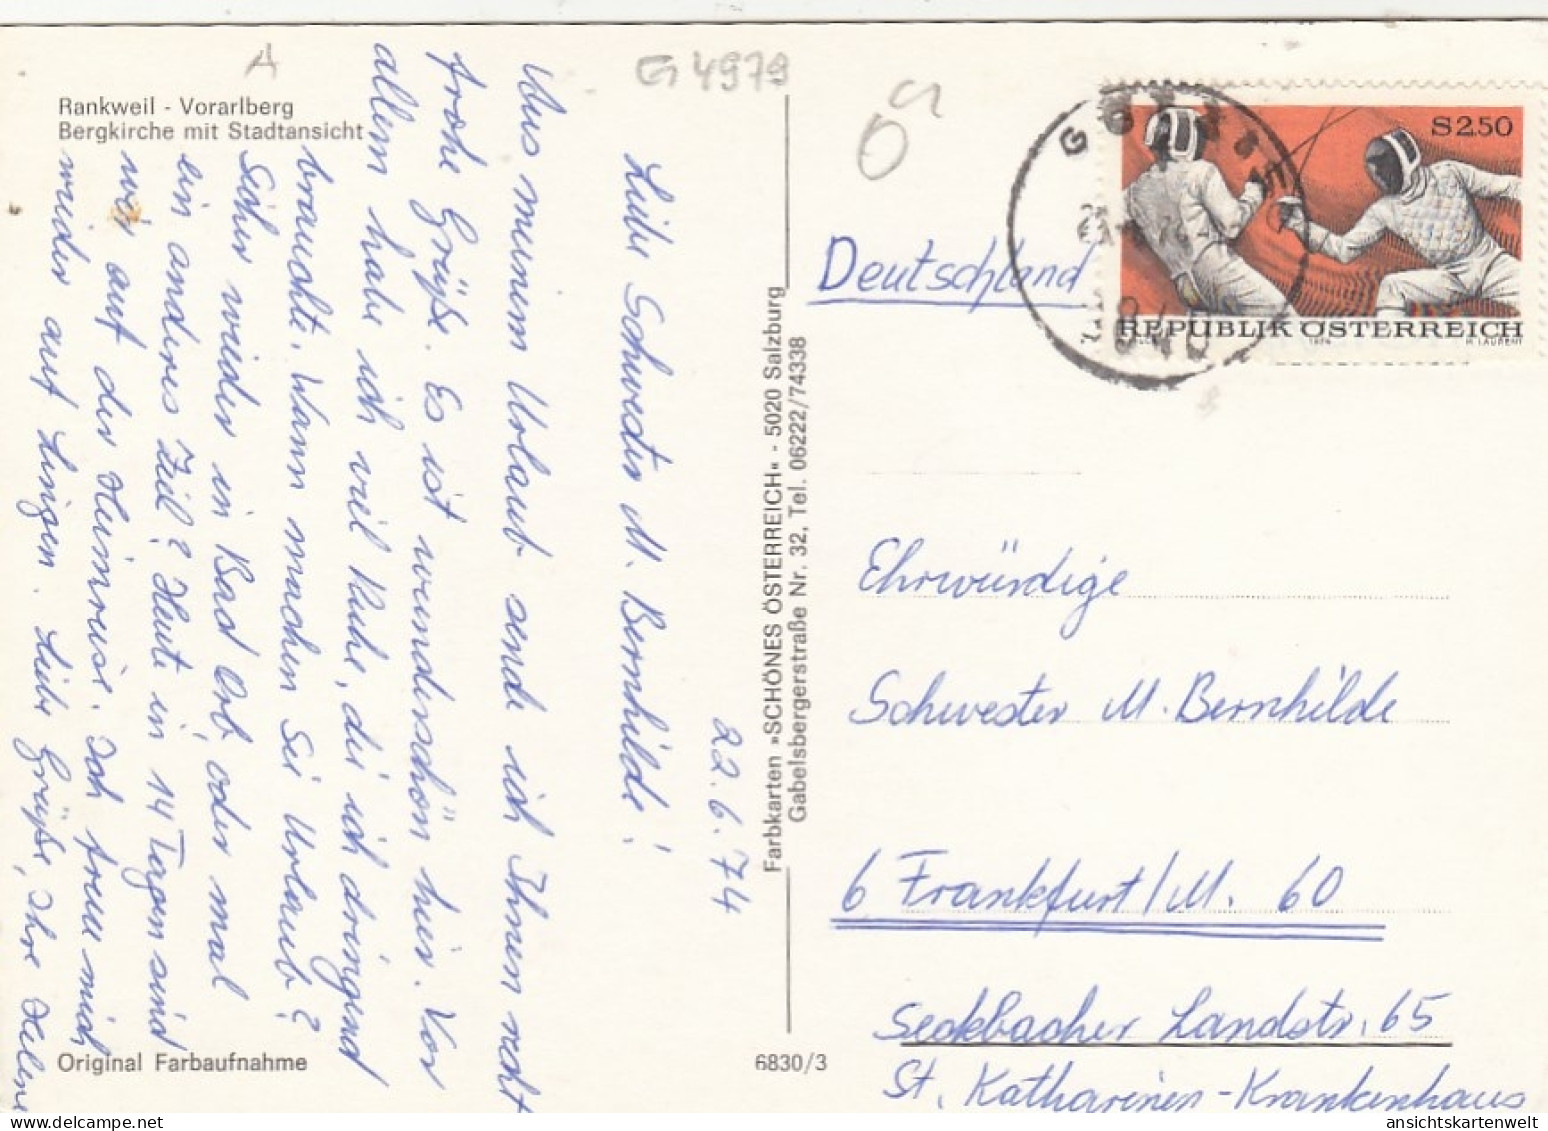 A
G 4979
Rankweil - Vorarlberg
Bergkirche mit Stadtansicht
22.6.74
Liebe Schwester M. Bernhilde!
Aus meinem Urlaub sende ich Ihnen recht
frohe Grüße. Es ist wunderschön hier. Vor
allem habe ich viel Ruhe, die ich dringend
brauchte. Wann machen Sie Urlaub?
Sicher wieder in Bad Orb, oder mal
ein anderes Ziel? Heute in 14 Tagen sind
wir auf der Heimreise. Ich freue mich
wieder auf Lingen. Liebe Grüße, Ihre Helene
Original Farbaufnahme
Farbkarten »SCHÖNES ÖSTERREICH« - 5020 Salzburg
Gabelsbergerstraße Nr. 32, Tel. 06222/74338
6830/3
S2.50
REPUBLIK ÖSTERREICH
1974
Deutschland
Ehrwürdige
Schwester M. Bernhilde
6 Frankfurt/M. 60
Seckbacher Landstr. 65
St. Katharinen-Krankenhaus
ansichtskartenwelt